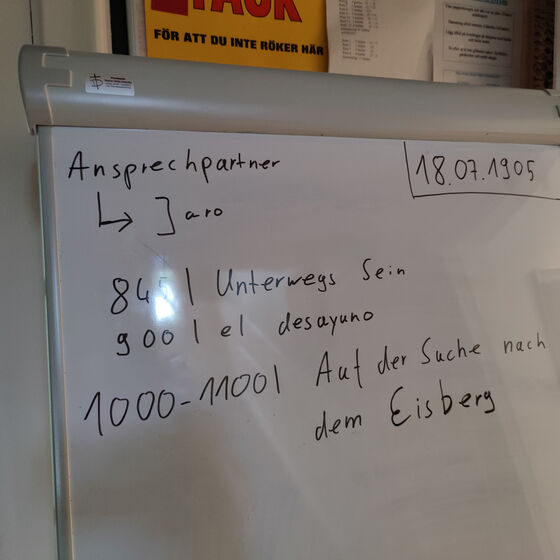 TACK
FÖR ATT DU INTE RÖKER HÄR
Ansprechpartner
18.07.1905
↳ Jaro
845 | Unterwegs Sein
900 | el desayuno
1000-1100 | Auf der Suche nach
dem Eisberg